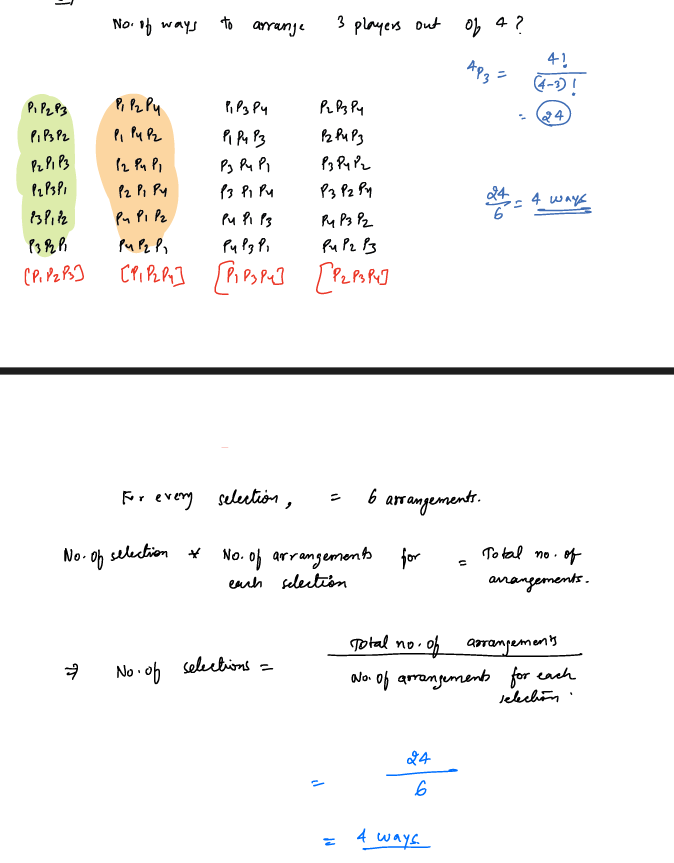 No. of ways to arrange 3 players out of 4 ?
4P3 = 4! / (4-3)!
= 24
P1P2P3 P1P2P4 P1P3P4 P2P3P4
P1P3P2 P1P4P2 P1P4P3 P2P4P3
P2P1P3 P2P4P1 P3P4P1 P3P4P2
P2P3P1 P2P1P4 P3P1P4 P3P2P4
P3P1P2 P4P1P2 P4P1P3 P4P3P2
P3P2P1 P4P2P1 P4P3P1 P4P2P3
[P1P2P3] [P1P2P4] [P1P3P4] [P2P3P4]
24/6 = 4 ways
For every selection, = 6 arrangements.
No. of selection * No. of arrangements for = Total no. of
each selection arrangements.
⇒ No. of selections = Total no. of arrangements
No. of arrangements for each
selection.
= 24
6
= 4 ways